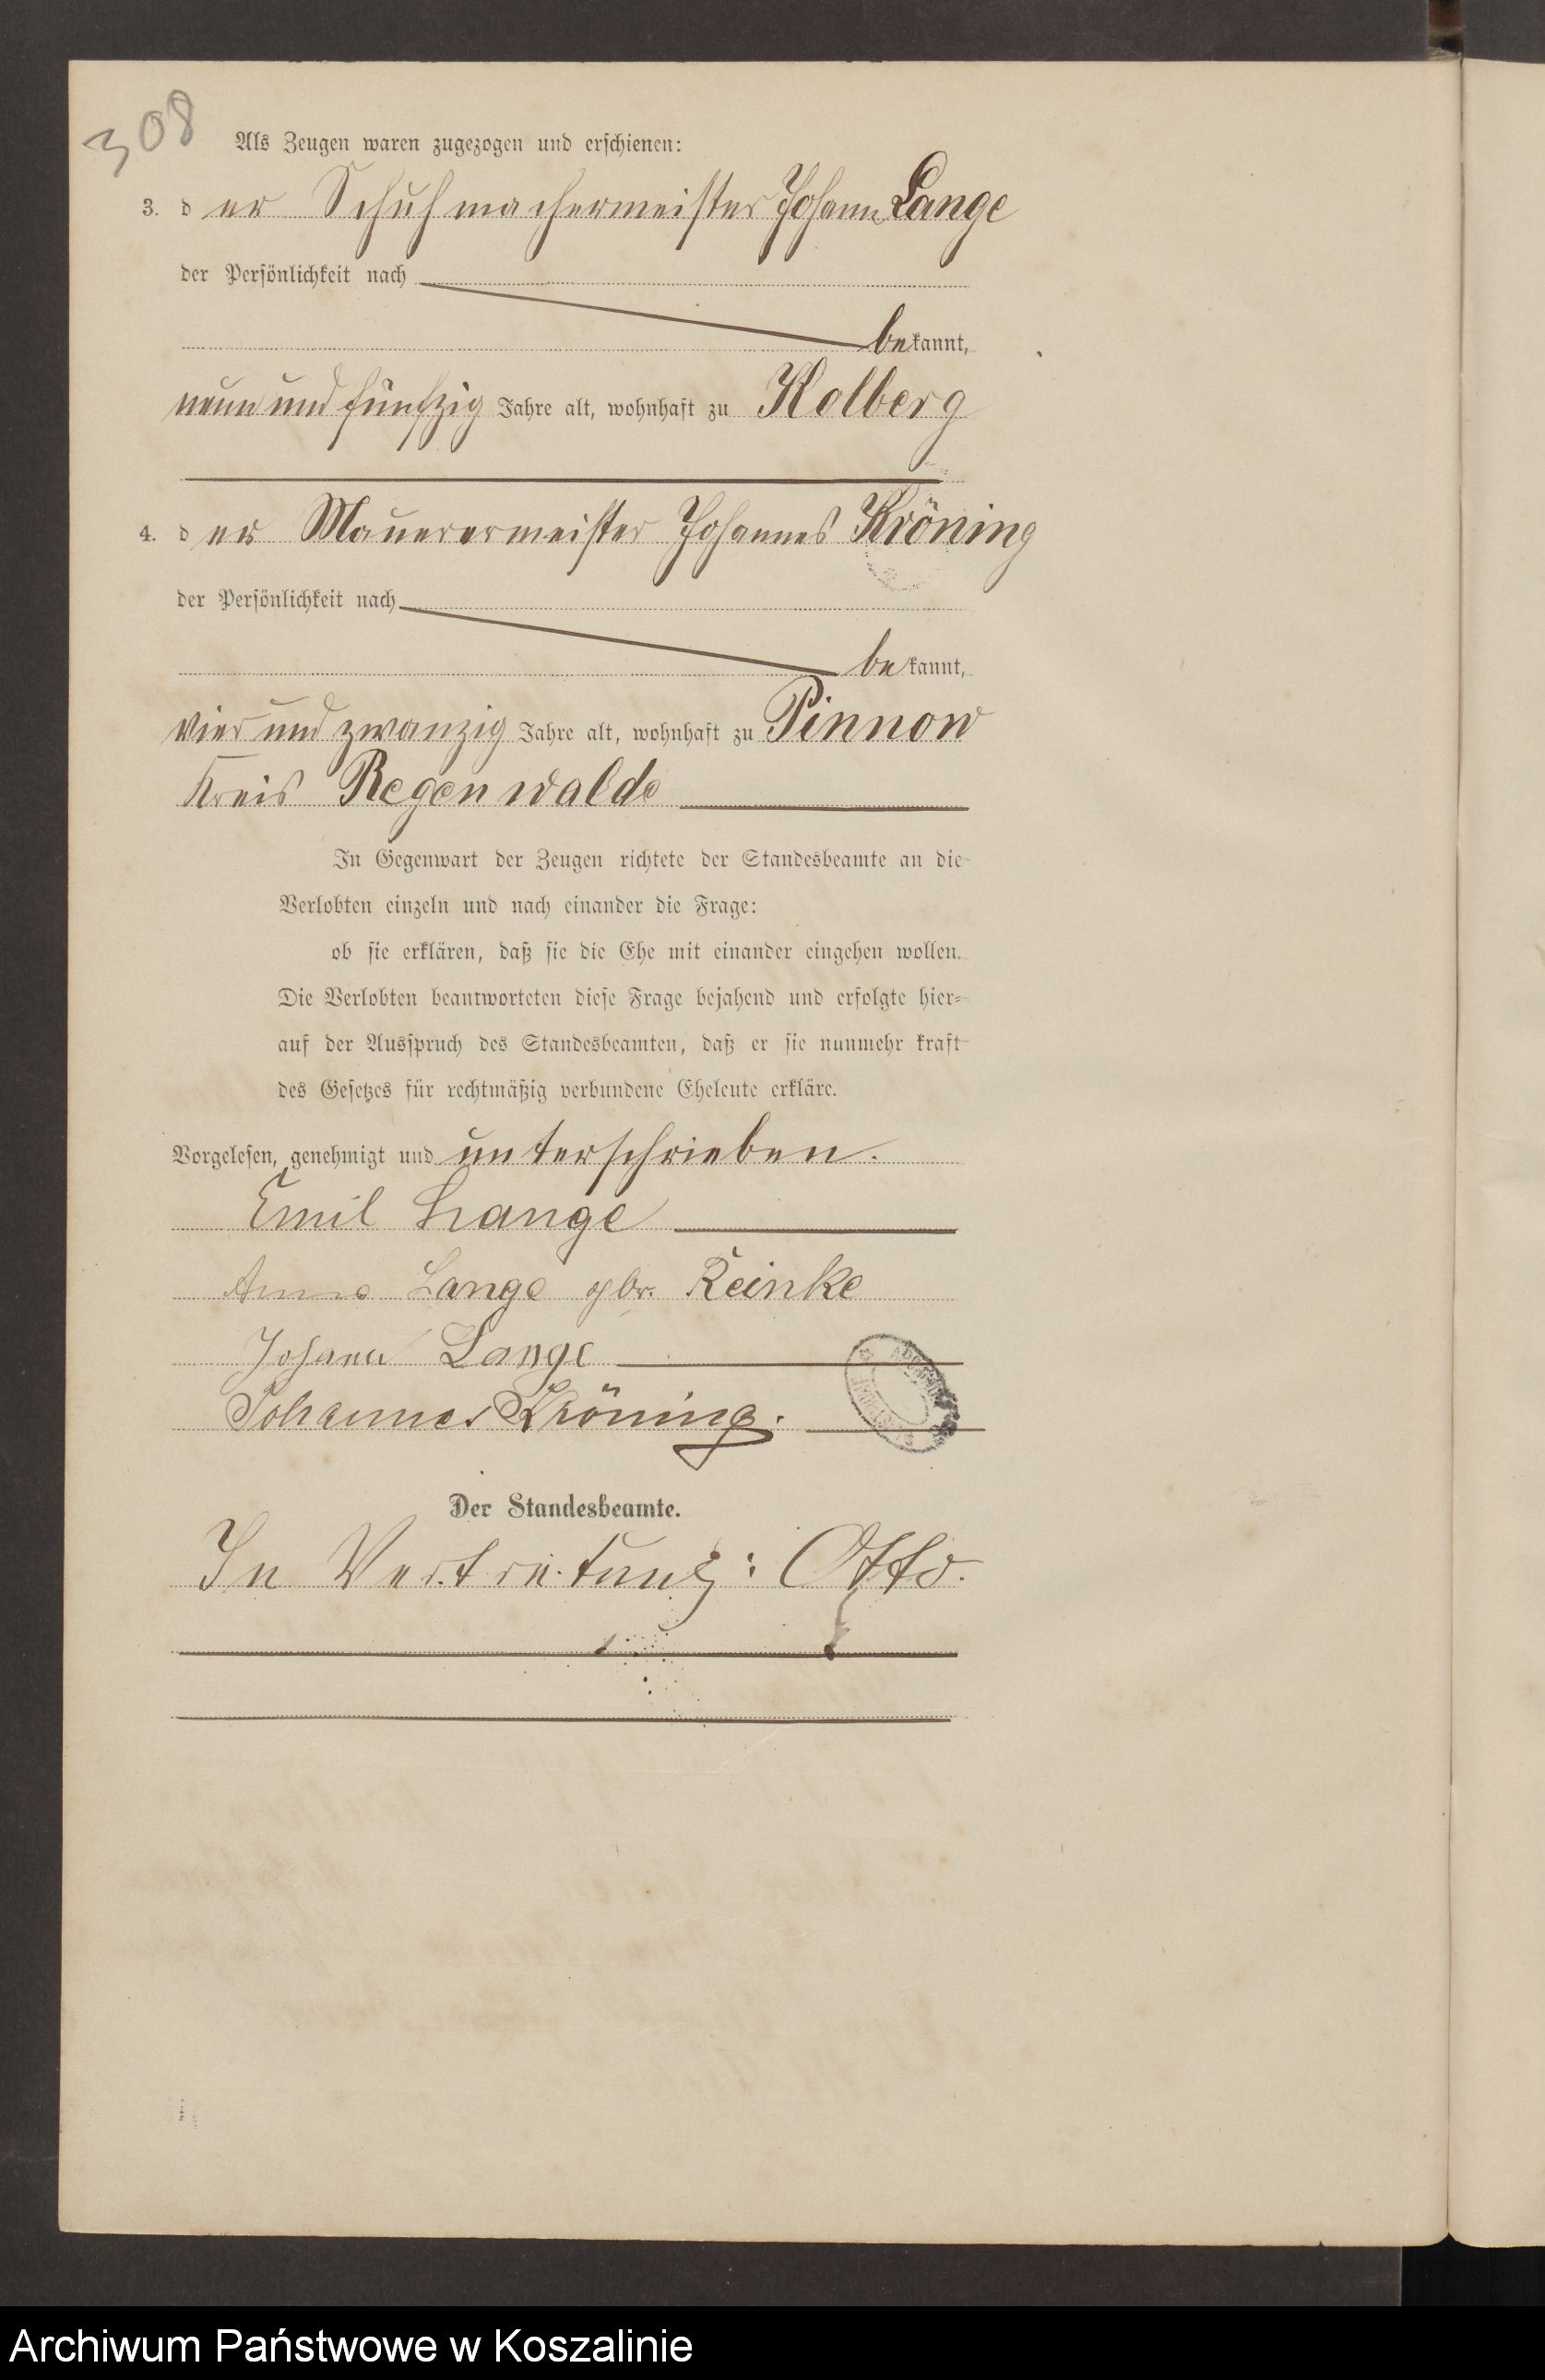 308
Als Zeugen waren zugezogen und erschienen:
3. der Schuhmachermeister Johann Lange
der Persönlichkeit nach
bekannt,
neun und fünfzig Jahre alt, wohnhaft zu Kolberg
4. der Mauerermeister Johannes Kröning
der Persönlichkeit nach
bekannt,
vier und zwanzig Jahre alt, wohnhaft zu Pinnow
Kreis Regenwalde
In Gegenwart der Zeugen richtete der Standesbeamte an die
Verlobten einzeln und nach einander die Frage:
ob sie erklären, daß sie die Ehe mit einander eingehen wollen.
Die Verlobten beantworteten diese Frage bejahend und erfolgte hier-
auf der Ausspruch des Standesbeamten, daß er sie nunmehr kraft
des Gesetzes für rechtmäßig verbundene Eheleute erkläre.
Vorgelesen, genehmigt und unterschrieben.
Emil Lange
Anna Lange gbr. Reinke
Johann Lange
Johannes Kröning.
Der Standesbeamte.
In Vertretung: Otto.
Archiwum Państwowe w Koszalinie